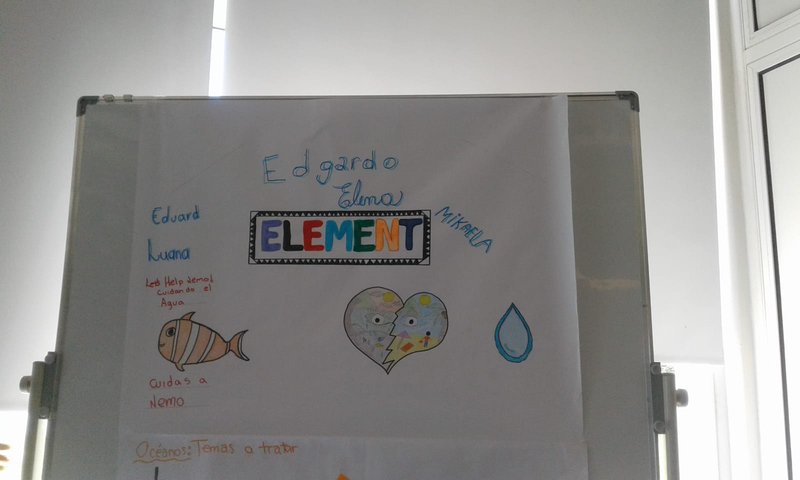 Edgardo
Elena
Eduard
ELEMENT
MiKAELA
Luana
Let's Help Nemo!
cuidando el
Agua
cuidas a
Nemo
Océanos: Temas a tratar